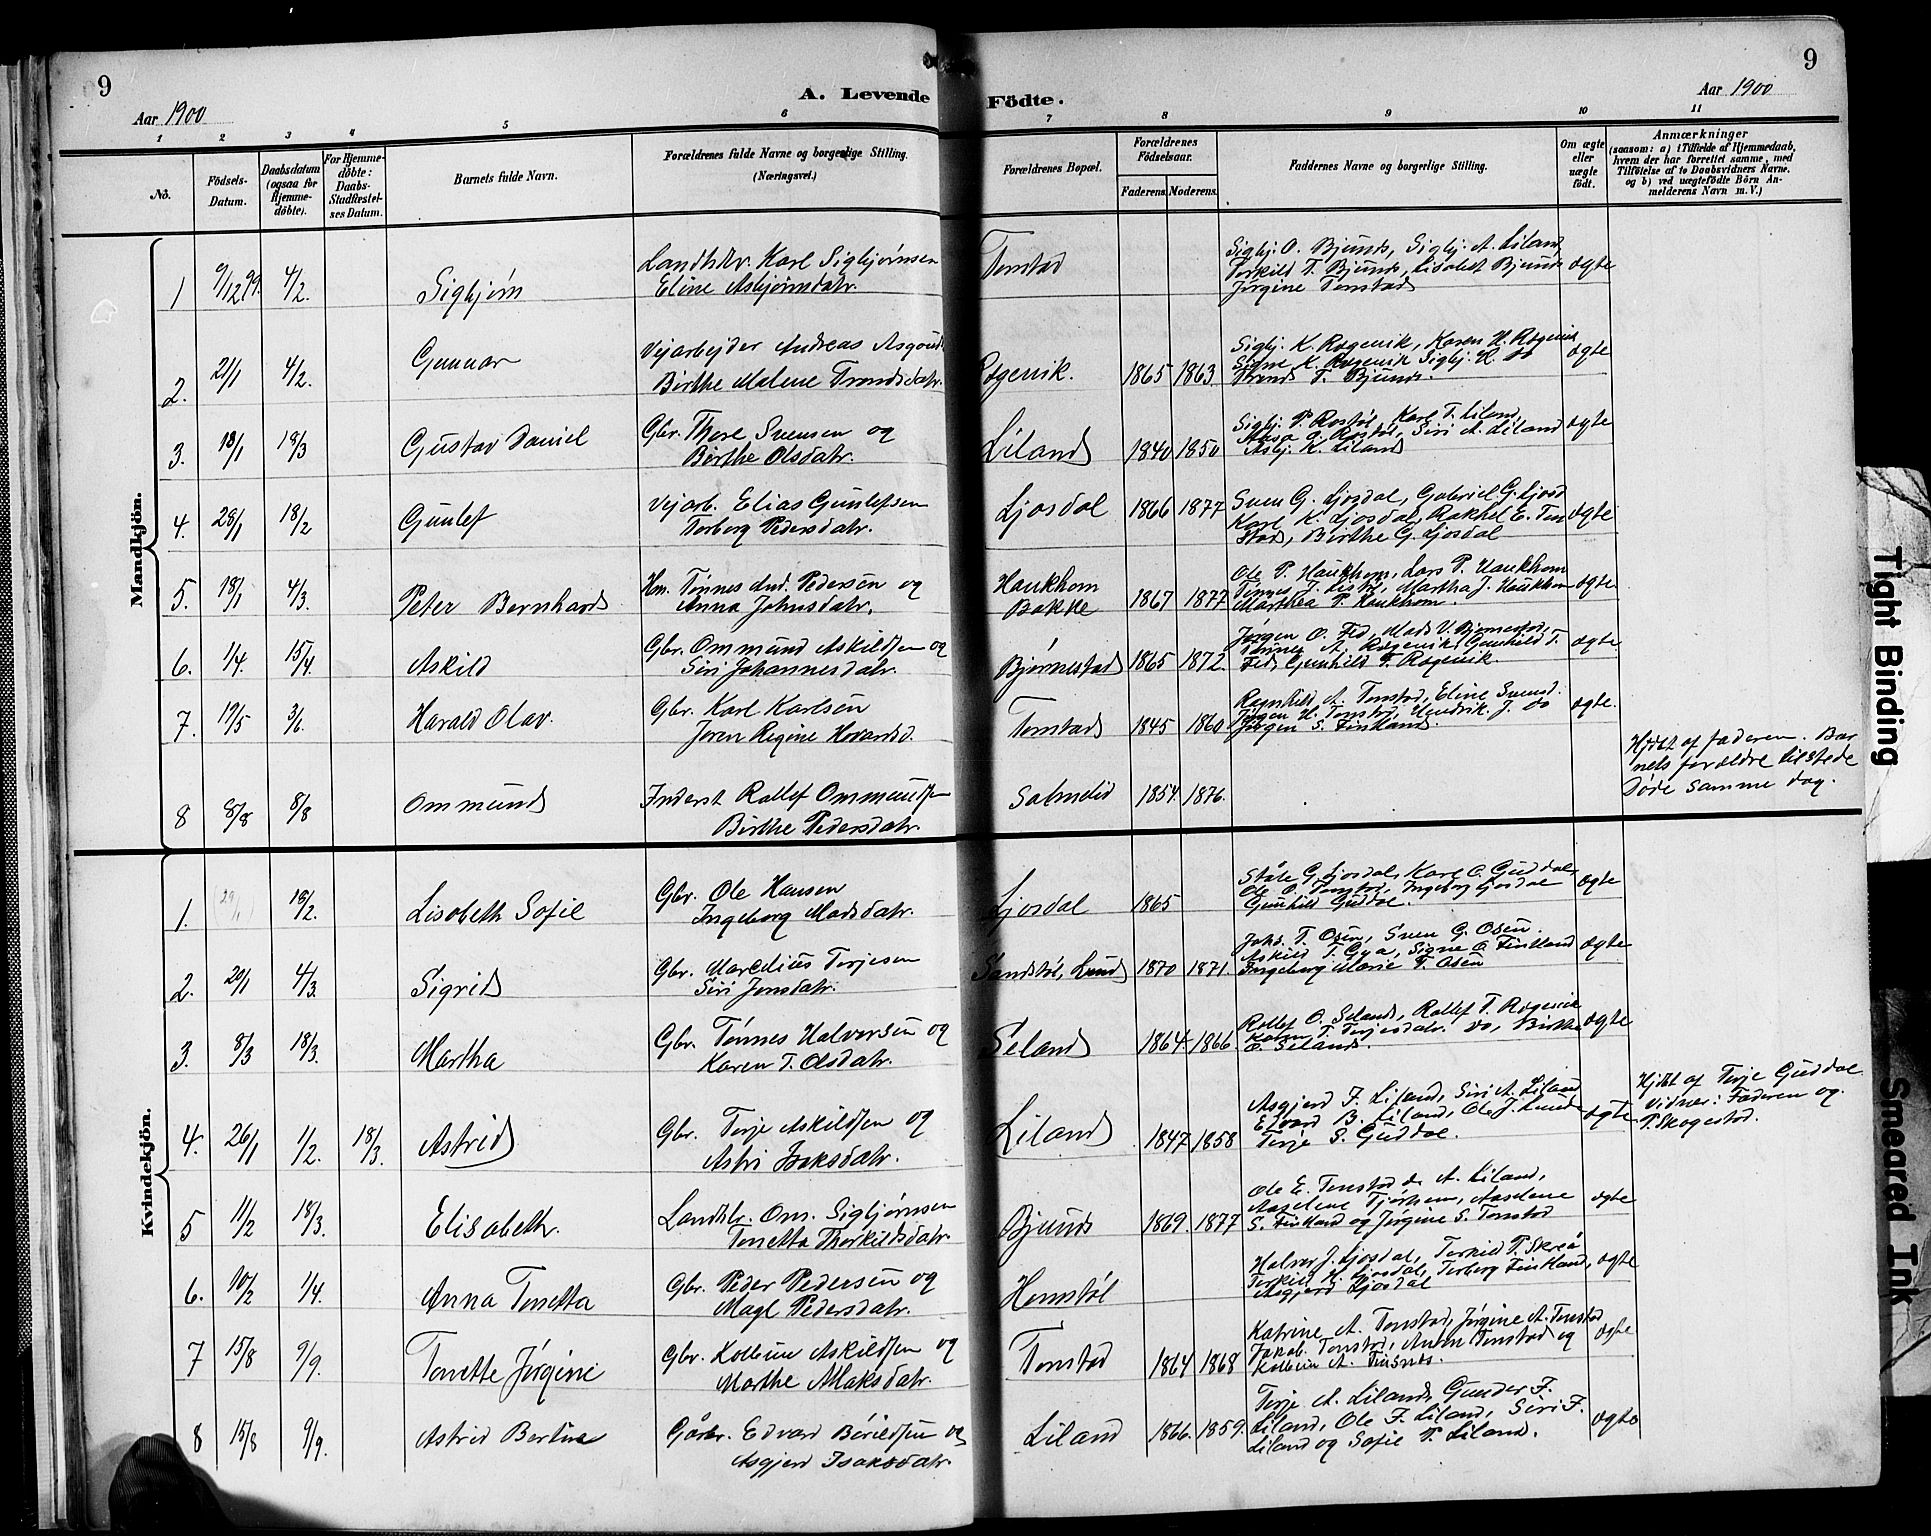 9
Aar 1900
A. Levende
Födte.
Aar 1900
9
1 2 3 4 5 6 7 8 9 10 11
No.
Födsels-Datum.
Daabsdatum (ogsaa for Hjemme-döbte).
For Hjemme-döbte: Daabs-Stadfæstel-ses Datum.
Barnets fulde Navn.
Forældrenes fulde Navne og borgerlige Stilling. (Næringsvei.)
Forældrenes Bopæl.
Forældrenes Födselsaar.
Faderens. Moderens.
Faddernes Navne og borgerlige Stilling.
Om ægte eller uægte födt.
Anmærkninger
(saasom: a) i Tilfælde af Hjemmedaab, hvem der har forrettet samme, med Tilföielse af to Daabsvidners Navne. og b) ved uægtefödte Börn An-melderens Navn m. V.)
Mandkjön.
1 9/12 99. 4/2. Sigbjørn
Landhdlr. Karl Sigbjørnsen
Eline Asbjørnsdatr.
Tonstad
Sigbj. O. Bjunes, Sigbj. A. Liland
Torkild T. Bjunes, Lisabet Bjunes
Jørgine Tonstad
ægte
2. 21/1 4/2. Gunnar
Vejarbejder Andreas
Birthe Malene Trondsdatr.
Røgevik. 1865 1863
Sigbj. K. Røgevik, Karen H. Røgevik
Signe K. Røgevik Sigbj. H. do
Trond T. Bjunes.
ægte
3. 13/1 18/3 Gustav Daniel
Gbr. Thore Svensen og
Birthe Olsdatr.
Liland 1840 1850
Sigbj. P. Røstøl, Karl T. Liland,
Aasa G. Røstøl, Siri A. Liland
Asbj. K. Liland
ægte
4. 28/1 18/2 Gunlef
Vejarb. Elias Gunlefsen
Torborg Pedersdatr.
Ljosdal 1866 1877
Sven G. Ljosdal, Gabriel G. Ljosd
Karl K. Ljosdal, Rakhel E. Ton
stad, Birthe G. Ljosdal
ægte
5. 18/1 4/3. Peter Bernhard
Hm. Tønnes And. Pedersen og
Anna Johnsdatr.
Haukhom
Bakke 1867 1877
Ole P. Haukhom, Lars P. Haukhom
Tønnes J. , Martha J. Haukhom
Marthea P. Haukhom.
ægte
6. 1/4. 15/4 Askild
Gbr. Ommund Askildsen og
Siri Johannesdatr.
Bjørnestad 1865 1872.
Jørgen O. Fed, Mads V. Bjørnestad,
Tønnes A. Røgevik, Gunhild T.
Fed, Gunhild T. Røgevik.
ægte
7. 19/5 3/6. Harald Olav.
Gbr. Karl Karlsen
Joren Regine Hovardsd.
Tonstad 1845 1860
Ragnhild A. Tonstad, Eline Svensd.
Jørgen H. Tonstad, Hendrik J. do
Jørgen S. Fintland.
ægte.
8 8/8 8/8 Ommund
Inderst Rollef Ommundsen
Birthe Pedersdatr.
Salmelid 1854. 1876.
Hjdbt af faderen. Bar
nets forældre tilstede
Døde samme dag.
Kvindekjön.
1. (29/1) 18/2. Lisabeth Sofie
Gbr. Ole Hansen
Ingeborg Madsdatr.
Ljosdal 1865
Ståle G. Ljosdal, Karl O. Guddal,
Ole O. Tonstad, Ingeborg Ljosdal
Gunhild Guddal.
ægte
2. 20/1 4/3. Sigrid
Gbr. Marselius Terjesen
Siri Jonsdatr.
Sandstøl, Lund 1870 1871.
Johs. T. Osen, Sven G. Osen.
Askild T. Gya, Signe O. Fintland
Ingeborg Marie T. Osen
ægte
3. 8/3 18/3. Martha
Gbr. Tønnes Halvorsen og
Karen T. Olsdatr.
Seland 1864 1866.
Rollef O. Seland, Rollef T. Røgevik
Karen T. Terjesdatr. do, Birthe
O. Seland.
ægte
4. 26/1 1/2. 18/3. Astrid
Gbr. Terje Askildsen og
Astri Isaksdatr.
Liland 1847 1858
Asgjerd F. Liland, Siri A. Liland
Edvard B. Liland, Ole J. Lunde
Terje S. Guddal.
ægte
Hjdbt af Terje Guddal
Vidner: Faderen og
P. Skogestad.
5 11/2 18/3. Elisabeth.
Landhdlr. Om. Sigbjørnsen
Tonetta Thorkildsdatr.
Bjunes 1869. 1877
Ole E. Tonstad A. Liland,
Aaselene Tjørhom, Aaselene
S. Fintland og Jørgine S. Tonstad
ægte
6. 10/2 1/4. Anna Tonetta
Gbr. Peder Pedersen og
Magl. Pedersdatr.
Homstøl
Halvor J. Ljosdal, Torkild P. Skreå
Torkild H. Ljosdal, Torborg Fintland,
Asgjerd Ljosdal
ægte
7 15/8 9/9. Tonette Jørgine
Gbr. Kolbein Askildsen og
Marthe Maksdatr.
Tonstad 1864 1868
Katrine A. Tonstad, Jørgine A. Tonstad
Jakob Tonstad, Tonstad og
Kolbein A. Finsnes.
ægte
8 15/8 9/9. Astrid Bertine
Gårbr. Edvard Børildsen og
Asgjerd Isaksdatr.
Liland 1866. 1859.
Terje A. Liland, Gunder F.
Liland, Ole F. Liland, Siri F.
Liland og Sofie P. Liland.
ægte
Tight Binding
Smeared Ink